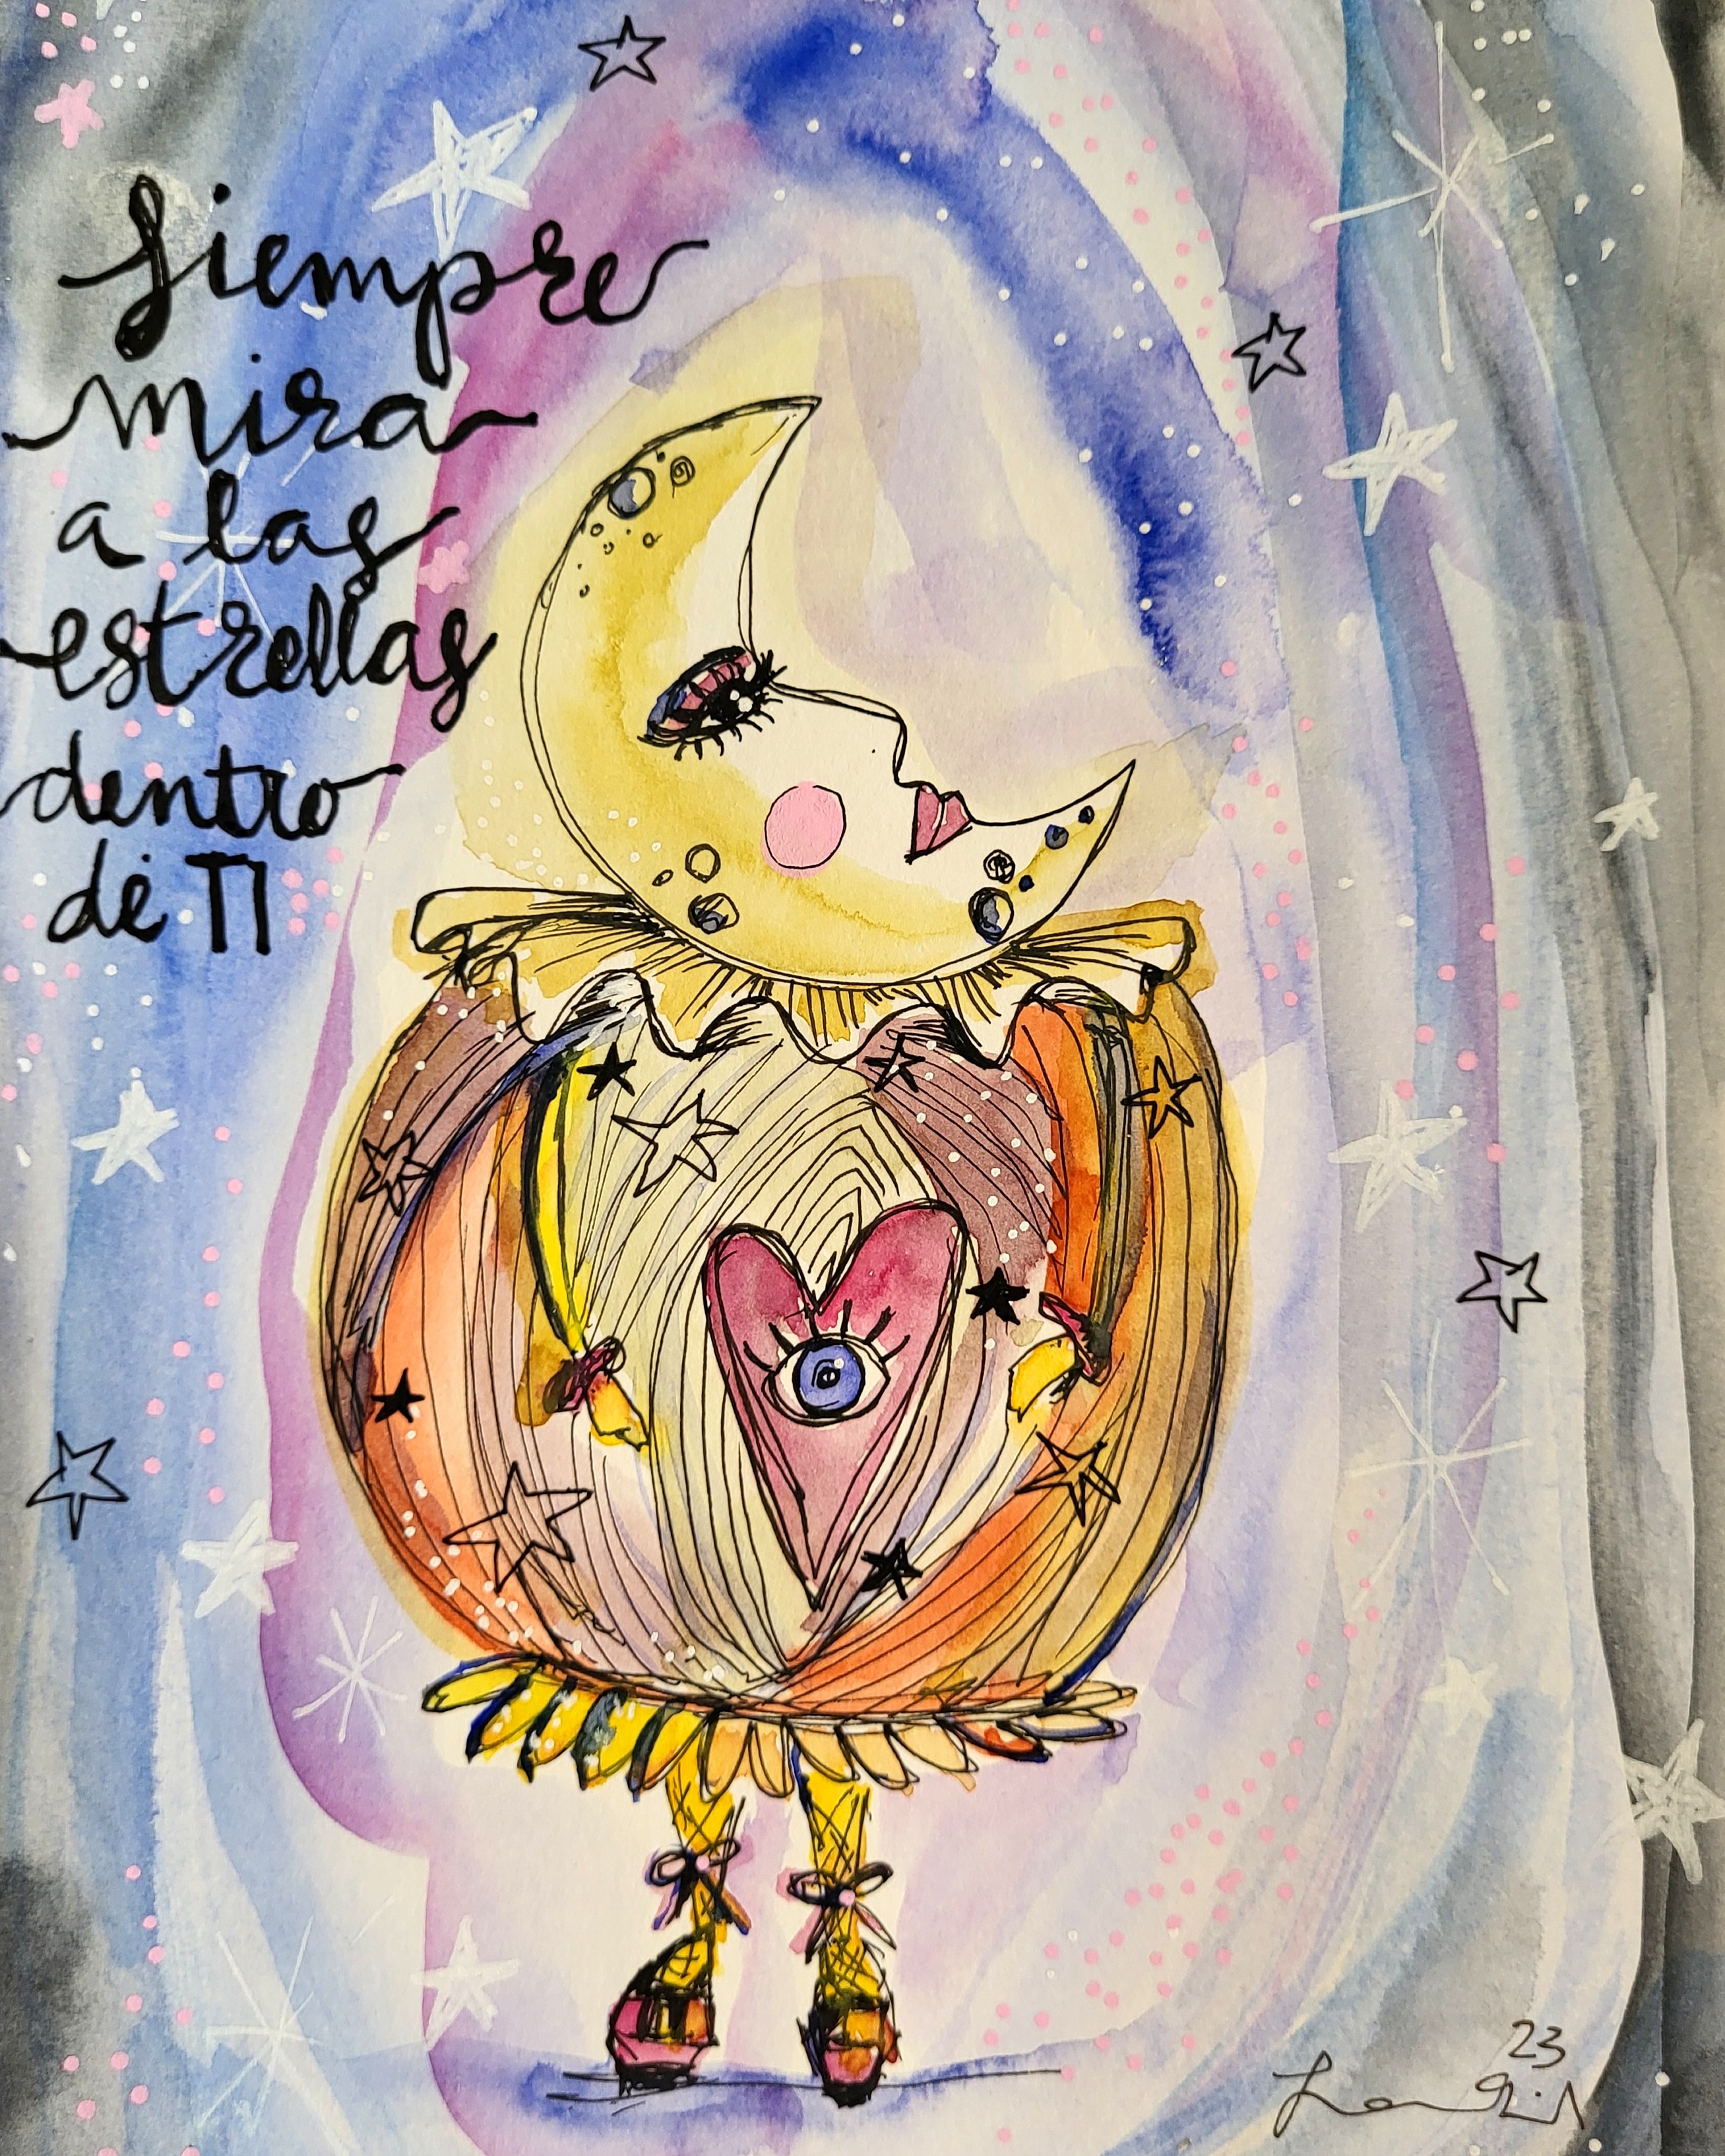 Siempre
mira
a las
estrellas
dentro
de TI
23